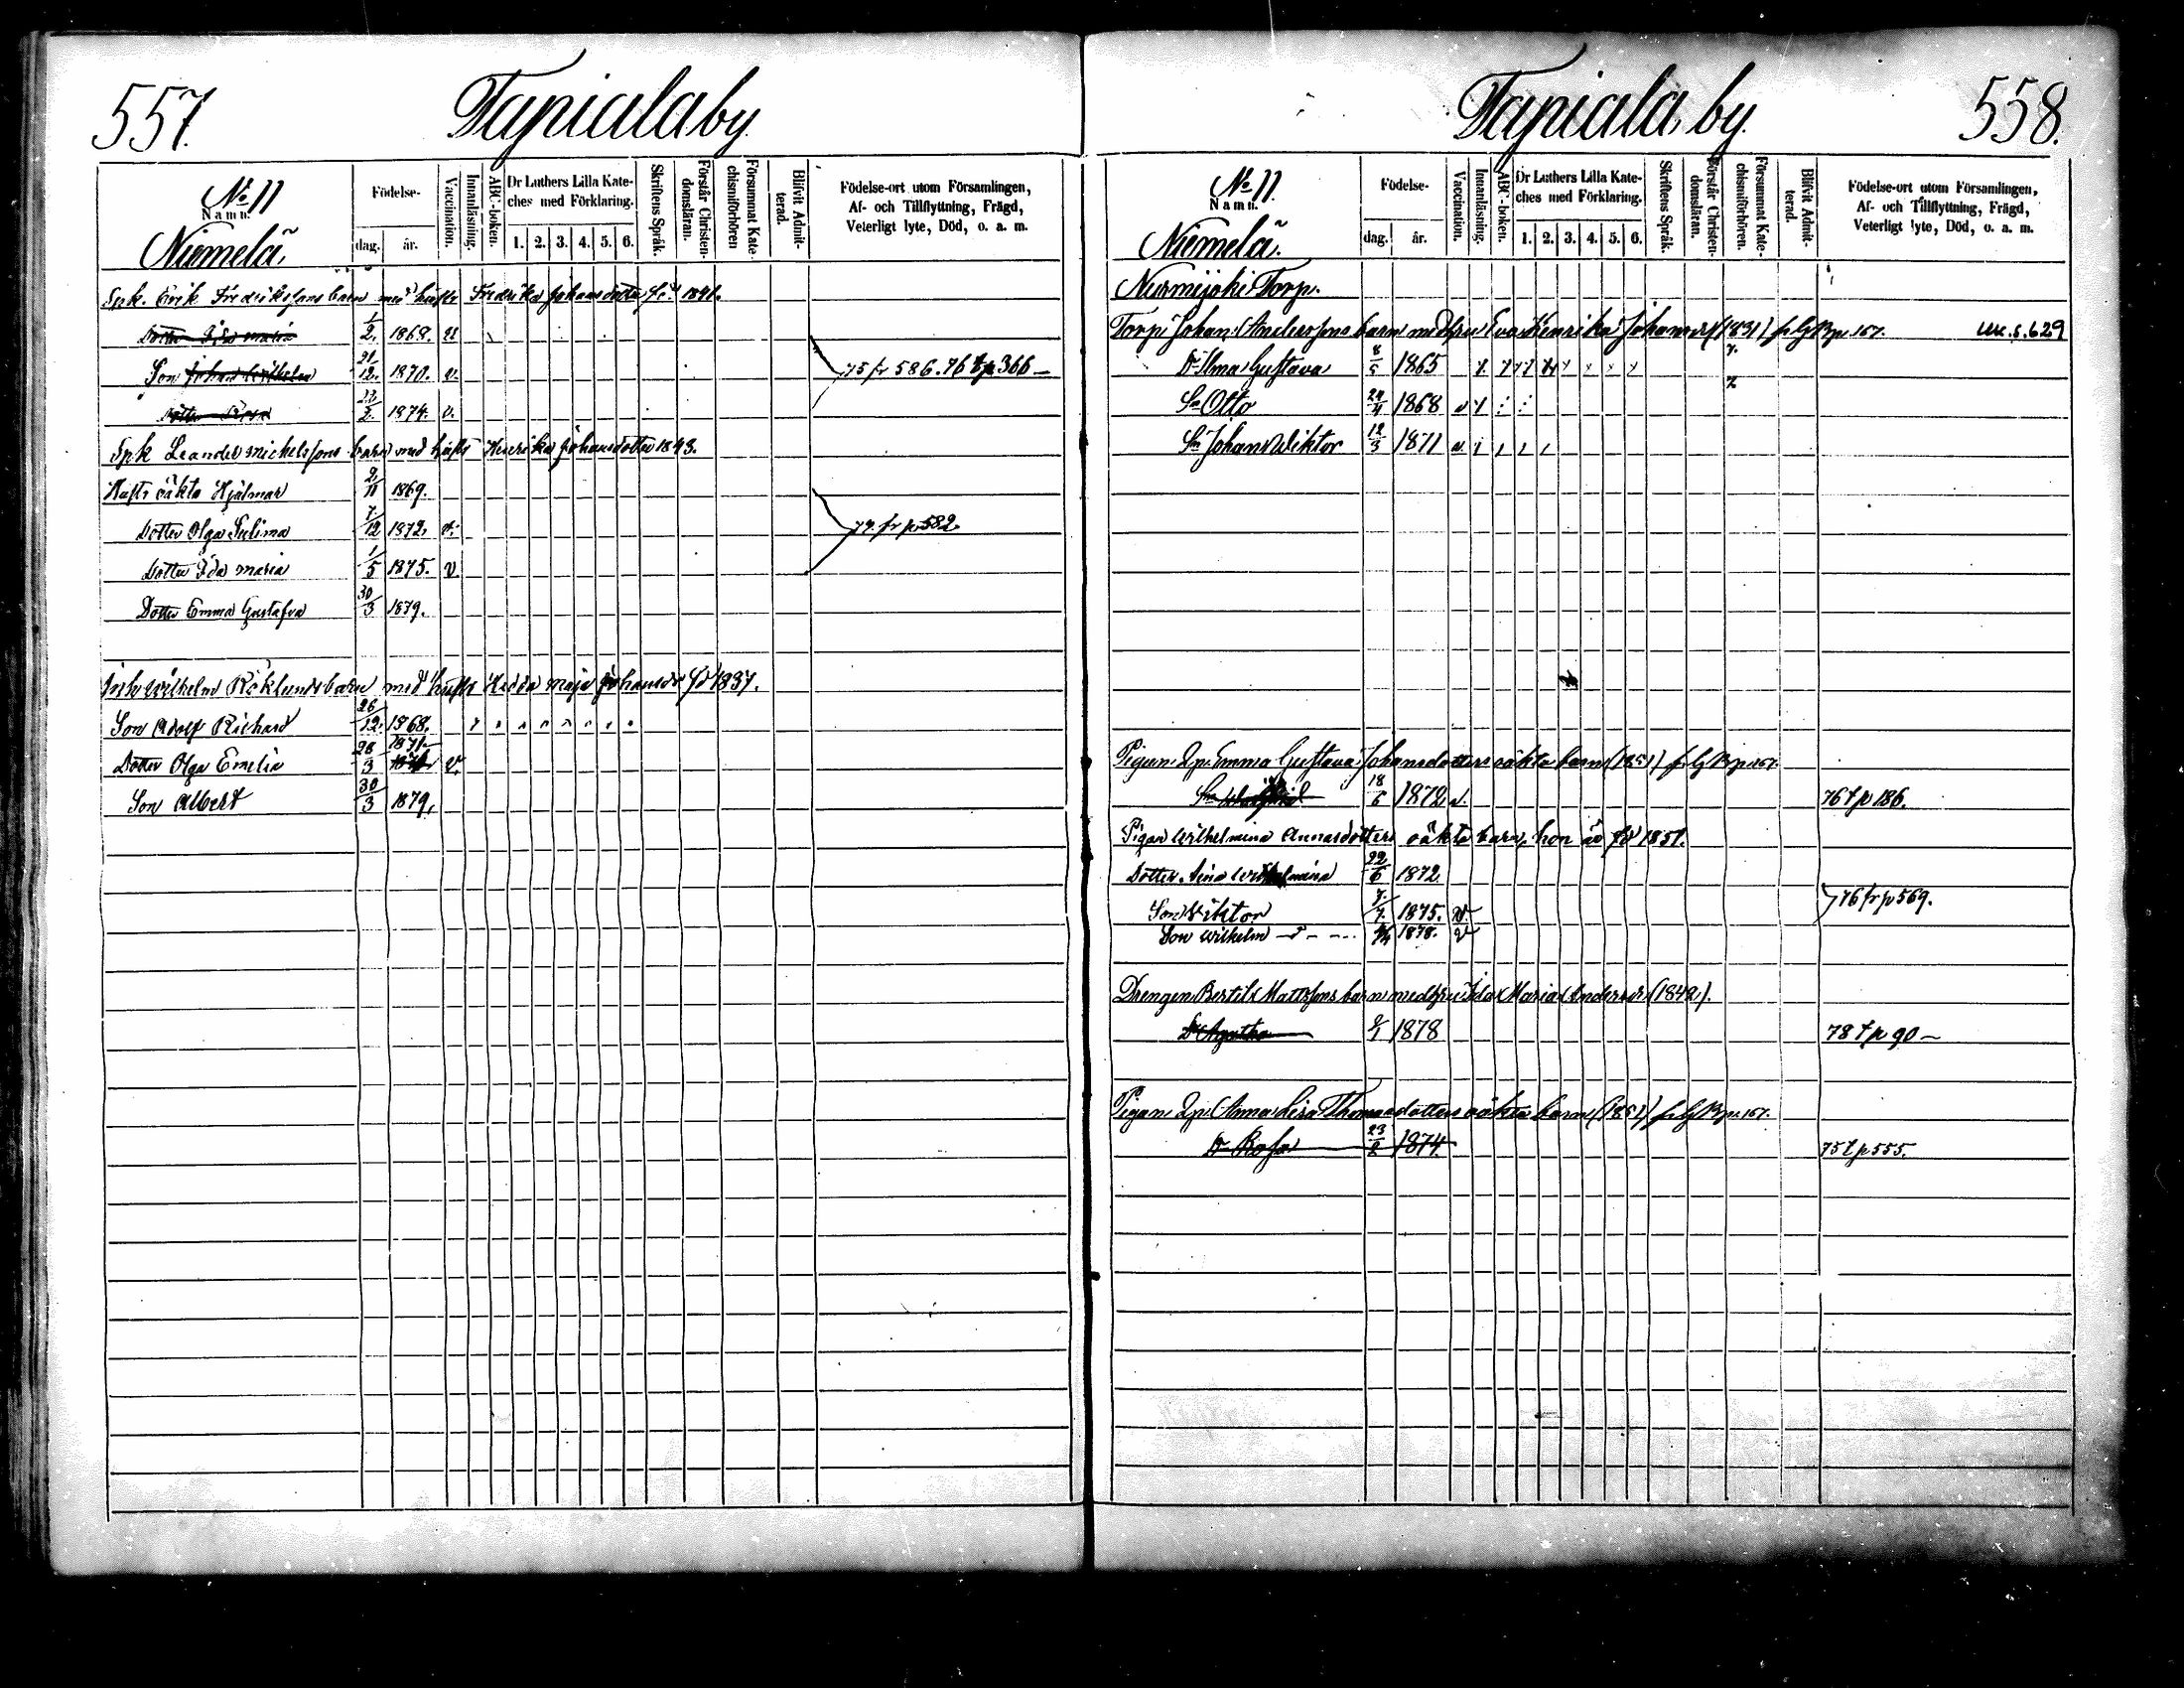 557.
Tapiala by
No 11
Namn.
Niemelä.
Födelse-
dag. år.
Vaccination.
Innanläsning.
ABC-boken.
Dr Luthers Lilla Kate-
ches med Förklaring.
1. 2. 3. 4. 5. 6.
Skriftens Språk.
Förstår Christen-
domsläran.
Försummat Kate-
chismiförhören
Blifvit Admit-
terad.
Födelse-ort utom Församlingen,
Af- och Tillflyttning, Frägd,
Veterligt lyte, Död, o. a. m.
Spk. Erik Fredrikssons barn med hustr Fredrika Johansdotter fd 1841.
Dotter Ida Maria 1/2. 1868. v
Son Johan Wilhelm 21/12. 1870. v. 75 fr 586. 76 t p 366 —
Dotter 22/2. 1874. v.
Spk Leander Michelssons barn med hustr Henrika Johansdotter 1843.
Hustr oäkta Hjalmar 2/11 1869.
Dotter Olga Selima 7/12 1872. v. 77. fr p 582.
Dotter Ida Maria 1/5 1875. v.
Dotter Emma Gustafva 30/3 1879.
Wilhelm Röklunds barn med hustr Hedda Maja Johansdr fd 1837.
Son Adolf Richard 26/12. 1868.
Dotter Olga Emelia 28/3 1871. v.
Son Albert 30/3 1879.
Tapiala by.
558.
No 11.
Namn.
Niemelä.
Födelse-
dag. år.
Vaccination.
Innanläsning.
ABC-boken.
Dr Luthers Lilla Kate-
ches med Förklaring.
1. 2. 3. 4. 5. 6.
Skriftens Språk.
Förstår Christen-
domsläran.
Försummat Kate-
chismiförhören.
Blifvit Admit-
terad.
Födelse-ort utom Församlingen,
Af- och Tillflyttning, Frägd,
Veterligt lyte, Död, o. a. m.
Nurmijoki Torp.
Torp. Johan Anderssons barn med hru Eva Henrika Johansdr (1831) fr G B p. 167. s. 629
Dr Ilma Gustava 8/5 1865
Sn Otto 24/4 1868 v
Sn Johan Wiktor 12/3 1871 v.
Pigan Emma Gustava Johansdotters oäkta barn (1851) fr G B p. 167.
Sn 18/6 1872 v. 76 t p 186.
Pigan Wilhelmina Annasdotters oäkta barn, hon är fd 1851.
Dotter Aina Wilhelmina 22/6 1872.
Son Viktor 7/7. 1875. v. 76 fr p 569.
Son Wilhelm 1878. v
Drengen Bertil Mattssons barn med hru Ida Maria Andersdr (1842).
Dr Agatha 9/1 1878 78 t p 90 —
Pigan Anna Lisa Thomasdotters oäkta barn (1851) fr G B p. 167.
Dr Rosa 23/2 1874. 75 t p 555.